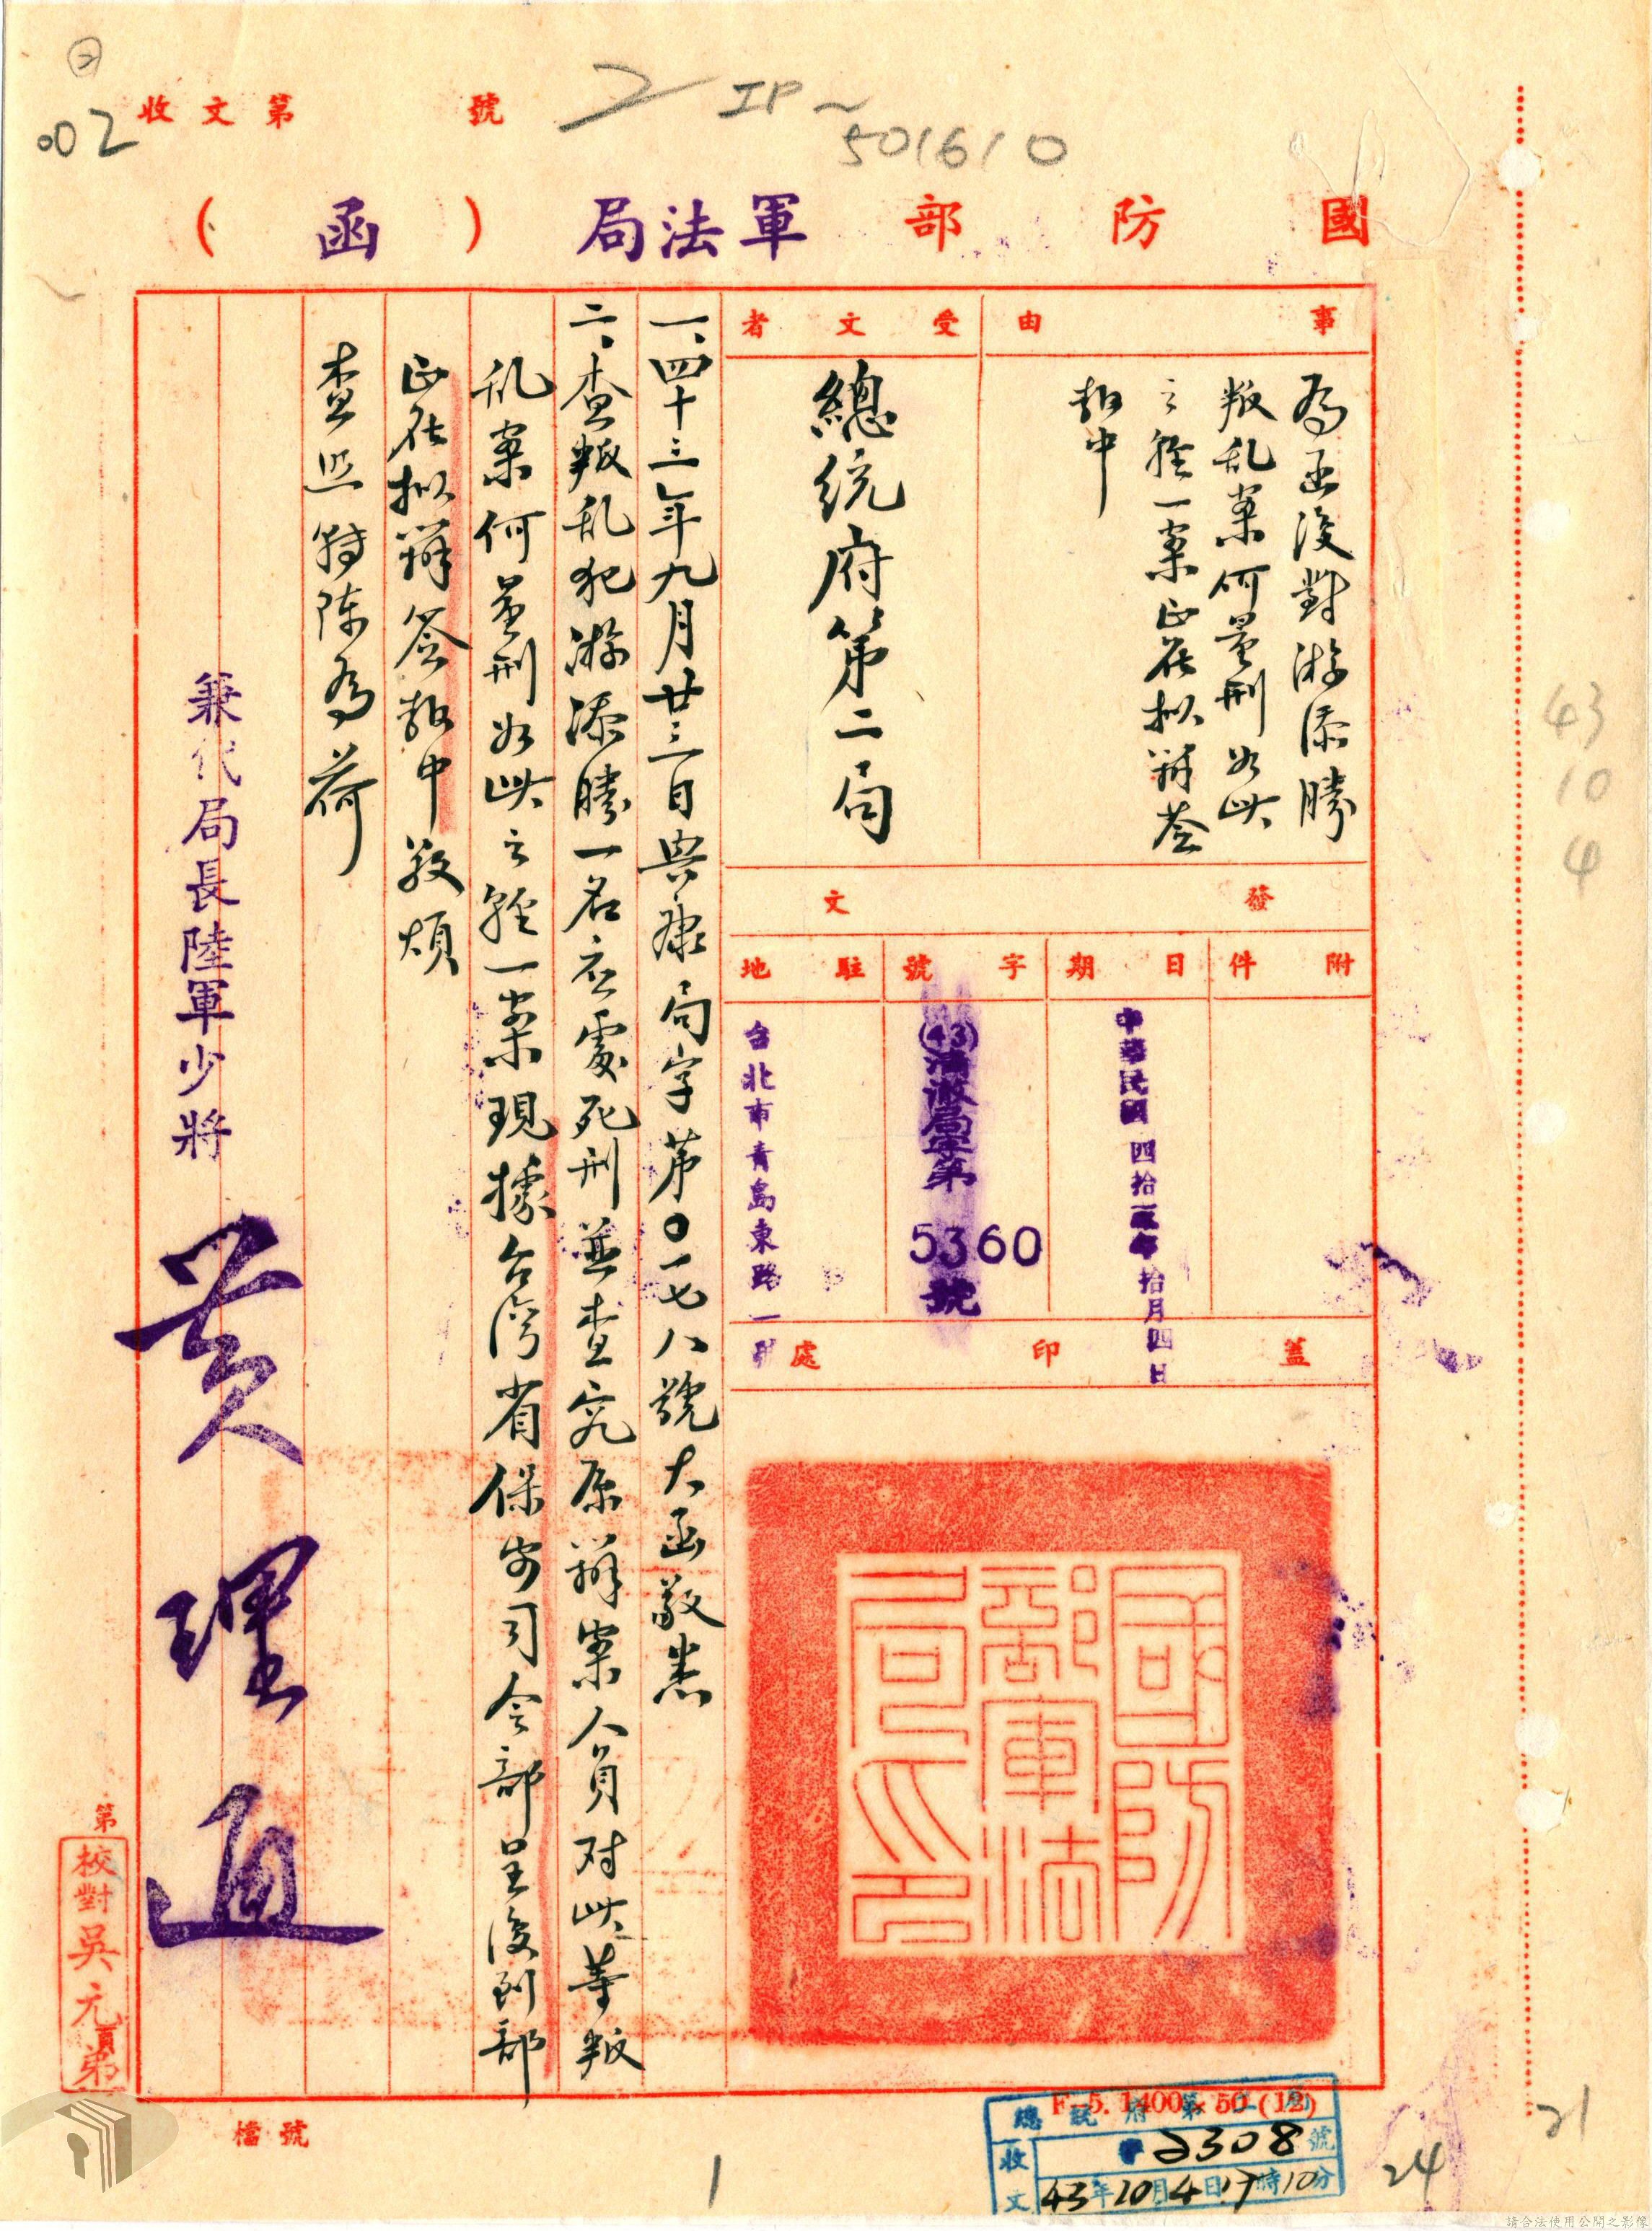 ②
002
收文第　　號
IP~
501610
國防部軍法局（函）
事由
為函復對游添勝
叛乱案何量刑如此
之輕一案正在拟辦簽
報中
受文者
總統府第二局
發文
附件
日期
中華民國四拾三年拾月四日
字號
(43)清澈局字第
5360
號
駐地
台北市青島東路一號
蓋印處
國防部軍法局印
一、四十三年九月廿三日興康局字第〇一七八號大函敬悉
二、查叛乱犯游添勝一名应處死刑並查究原辦案人員对此等叛
乱案何量刑如此之輕一案現據台灣省保安司令部呈復到部
正在拟辦簽報中敬煩
查照特陳為荷
兼代局長陸軍少將
黃理通
第　　頁
校對吳元弟
檔號
F-5. 1400×50 (12)
總統府第二局
收文
2308號
43年10月4日17時10分
43
10
4
21
24
1
請合法使用公開之影像